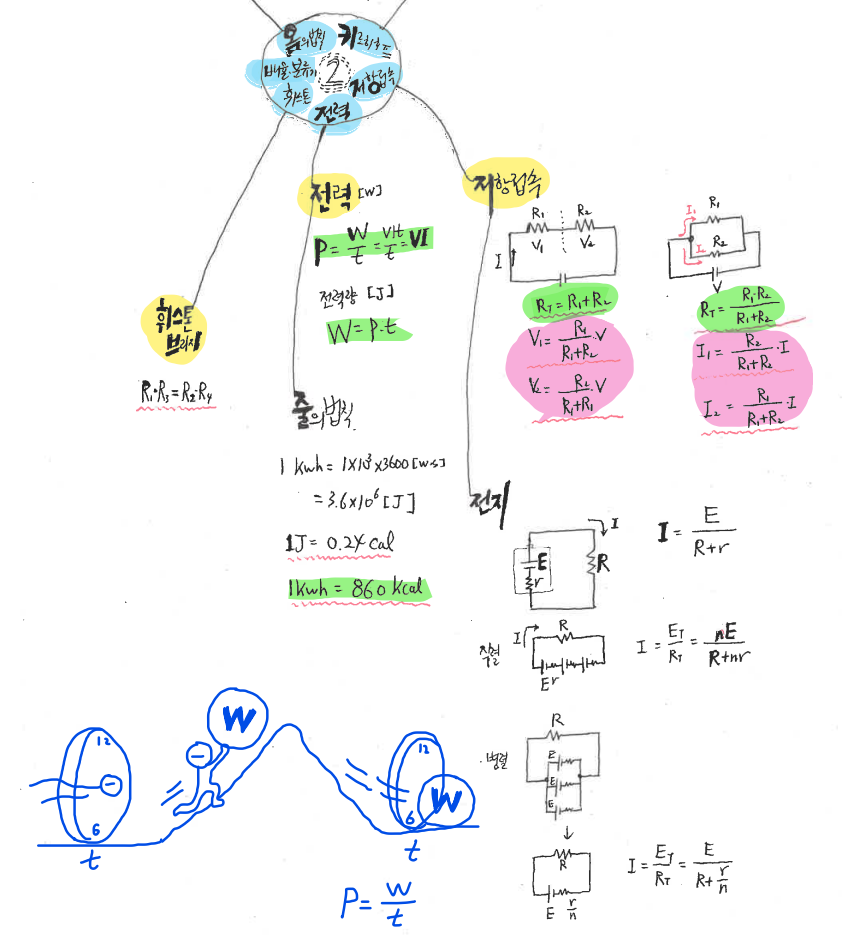 옴의법칙 키르히호프
배율·분류기 2 저항접속
휘스톤
전력
전력 [W]
P = W/t = VIt/t = VI
전력량 [J]
W = P·t
휘스톤
브리지
R₁·R₃ = R₂·R₄
줄의법칙
1 kwh = 1×10³×3600 [W·s]
= 3.6×10⁶ [J]
1J = 0.24 cal
1kwh = 860 kcal
저항접속
R₁ R₂
V₁ V₂
I
R_T = R₁+R₂
V₁ = R₁/(R₁+R₂)·V
V₂ = R₂/(R₁+R₁)·V
I₁ R₁
I₂ R₂
V
R_T = R₁·R₂/(R₁+R₂)
I₁ = R₂/(R₁+R₂)·I
I₂ = R₁/(R₁+R₂)·I
전지
I
E
r
R
I = E/(R+r)
직렬
I R
E r
I = E_T/R_T = nE/(R+nr)
병렬
R
E
E
E
↓
R
E r/n
I = E_T/R_T = E/(R+r/n)
12
-
6
t
W
-
12
W
6
t
P = W/t